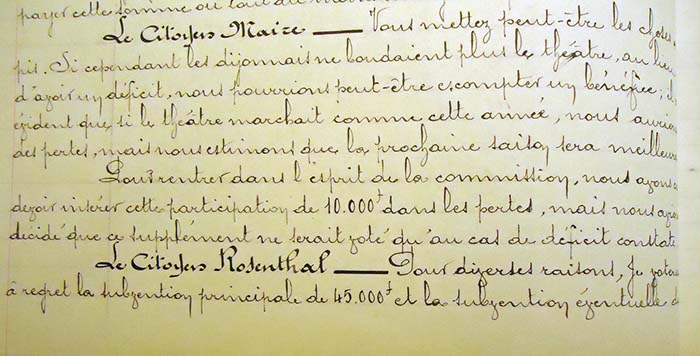 payer cette somme ou tout au
Le Citoyen Maire — Vous mettez peut-être les choses a
pis. Si cependant les dijonnais ne boudaient plus le théâtre, au lieu
d'avoir un déficit, nous pourrions peut-être escompter un bénéfice; il
évident que si le théâtre marchait comme cette année, nous aurion
des pertes, mais nous estimons que la prochaine saison sera meilleure
Pour rentrer dans l'esprit de la commission, nous avons
devoir insérer cette participation de 10.000f dans les pertes, mais nous avon
décidé que ce supplément ne serait voté qu'au cas de déficit constaté
Le Citoyen Rosenthal — Pour diverses raisons, je voterai
à regret la subvention principale de 45.000f et la subvention éventuelle d